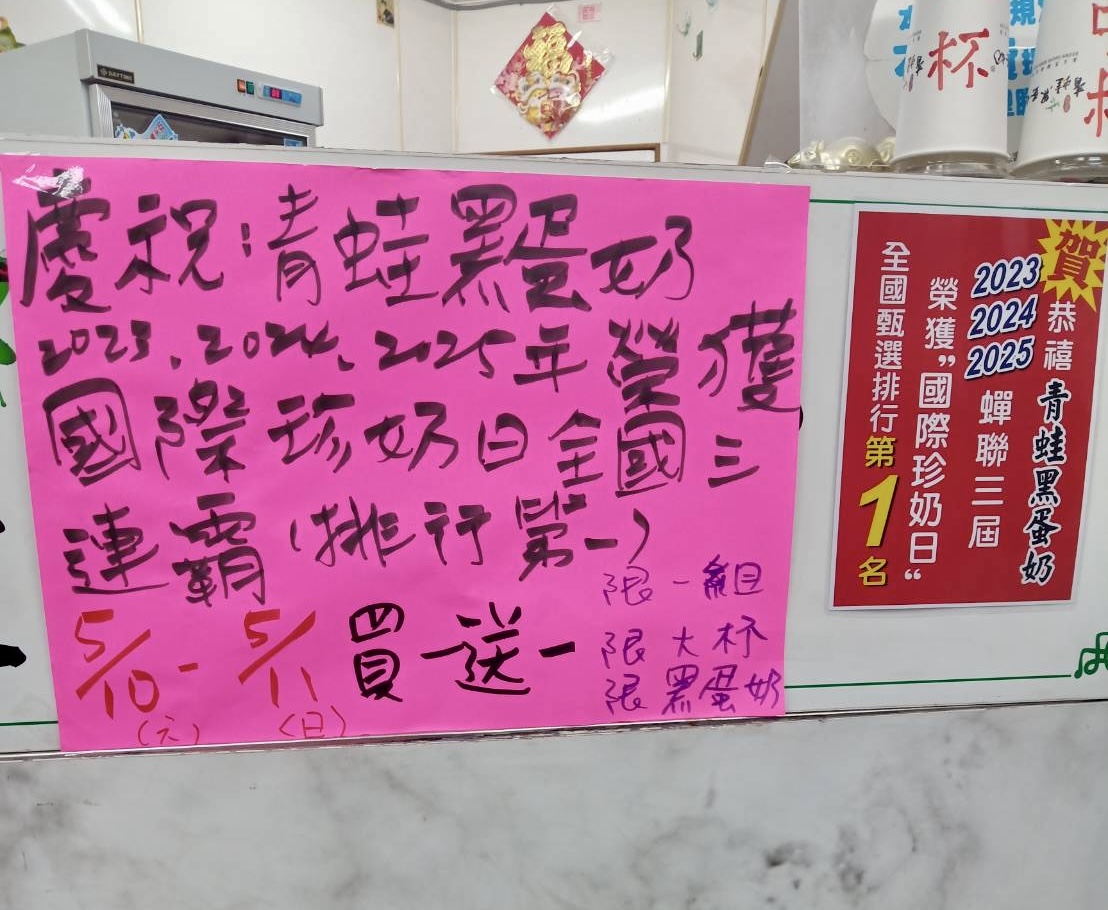 DAYTIME
福
杯
慶祝:青蛙黑蛋奶
2023、2024、2025年榮獲
國際珍奶日全國三
連霸(排行第一)
5/10 - 5/11 買一送一
(六) (日)
限一組
限大杯
限黑蛋奶
賀
恭禧 青蛙黑蛋奶
2023
2024
2025
蟬聯三屆
榮獲”國際珍奶日“
全國甄選排行第1名